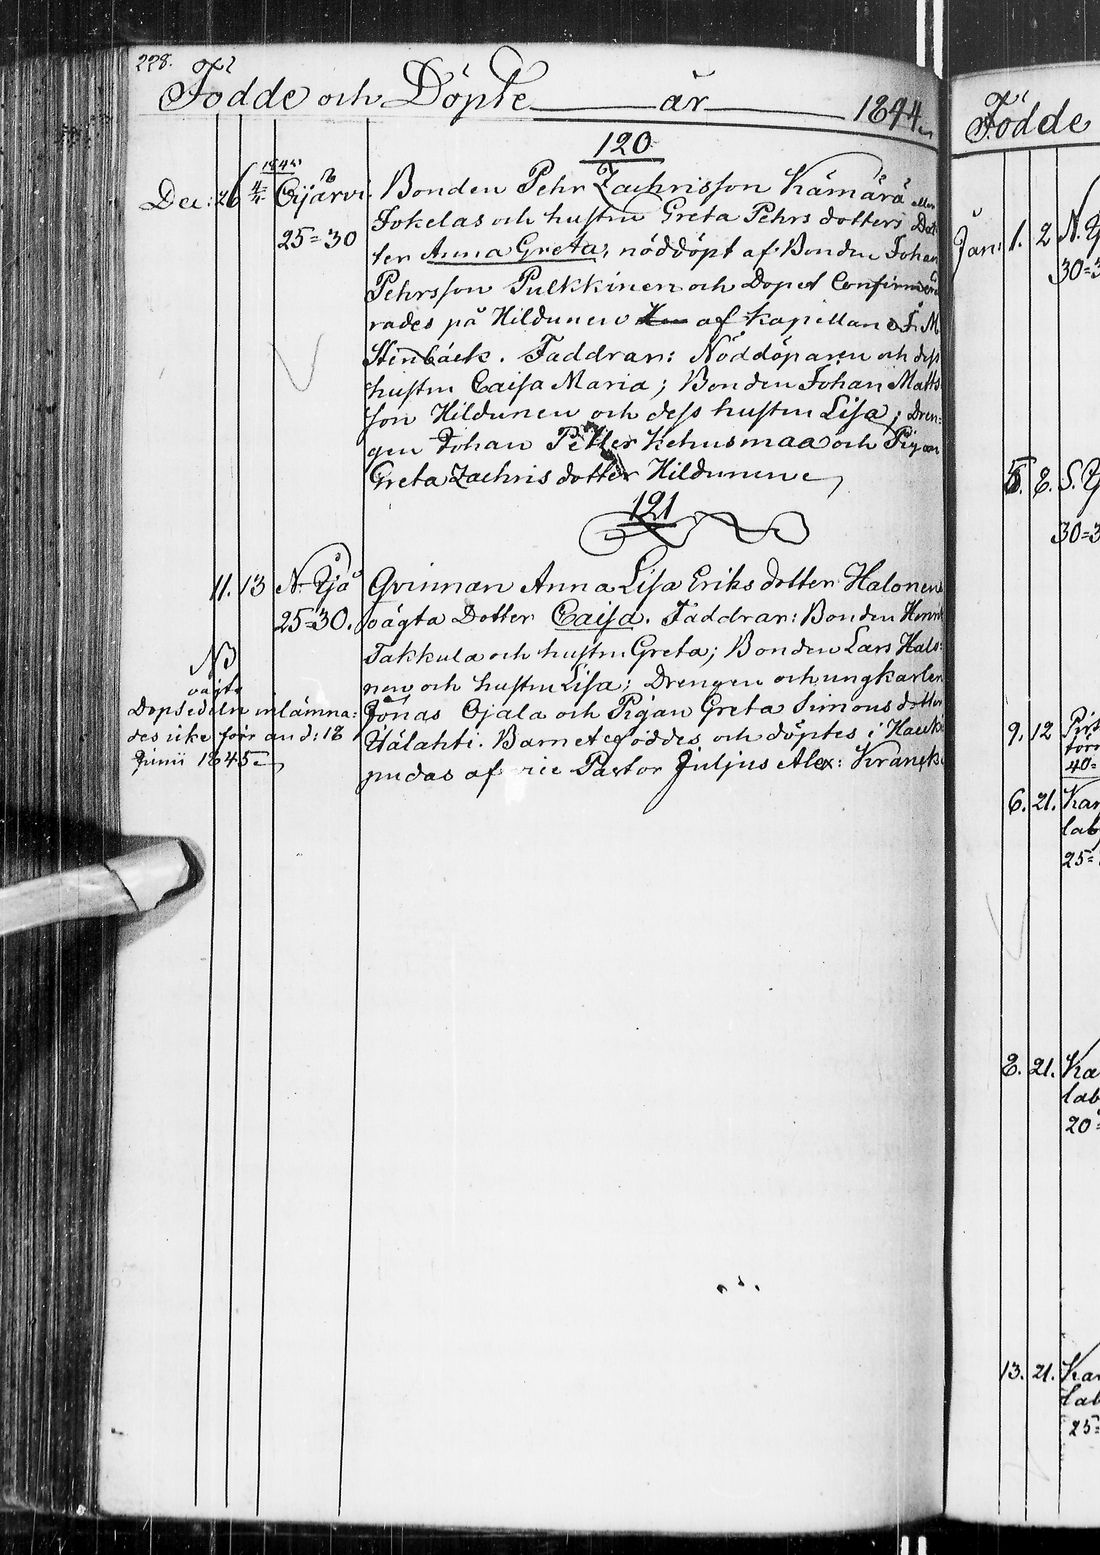 228.
Födde och Döpte år 1844
120
1845
Dec: 26 4/4 Öijärvi. Bonden Pehr Zachrisson Kämärä eller
Jokelas och hustru Greta Pehrs dotters Dot-
25=30
ter Anna Greta, nöddöpt af Bonden Johan
Pehrsson Pulkkinen och Dopet Confirme-
rades på Hildunen af Kapellan J. M.
Stenbäck. Faddrar: Nöddöparen och dess
hustru Caisa Maria; Bonden Johan Matts
son Hildunen och dess hustru Lisa; Dren-
gen Johan Petter Kehusmaa och Pigan
Greta Zachris dotter Hildunen
121
11. 13 N. Ijå Qvinnan Anna Lisa Eriks dotter Halonens
25=30. oägta Dotter Caisa. Faddrar: Bonden Henrik
Takkula och hustru Greta; Bonden Lars Halo-
NB
nen och hustru Lisa; Drengen och ungkarlen
oägta
Dopsedeln inlämna-
Jonas Ojala och Pigan Greta Simons dotter
des icke förr än d: 18
Itälahti. Barnet föddes och döptes i Hauki
Junii 1845
pudas af vice Pastor Juljus Alex: Kranck
Födde
Jan: 1. 2 N. Y
30=3
5. 8. S. Y
30=3
9. 12
40=
6. 21. Kar
lab
25=
8. 21. Ka
lab
20=
13. 21. Kar
lab
25=